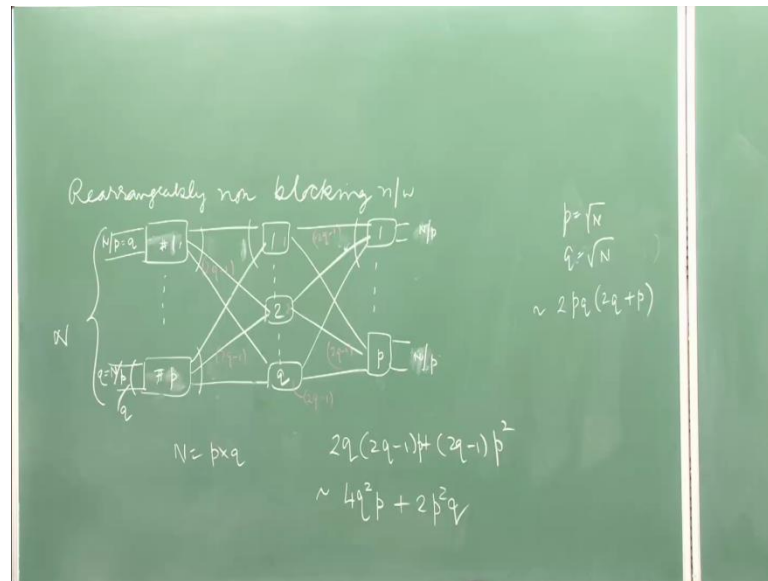 Rearrangeably non blocking n/w
N/p=q #1 1 (2q-1) 1 N/p
(2q-1)
N
2
q=N/p #p (2q-1) q (2q-1) p N/p
q
(2q-1)
N = p×q
2q(2q-1)p+(2q-1)p²
~ 4q²p + 2p²q
p=√N
q=√N
~ 2pq(2q+p)